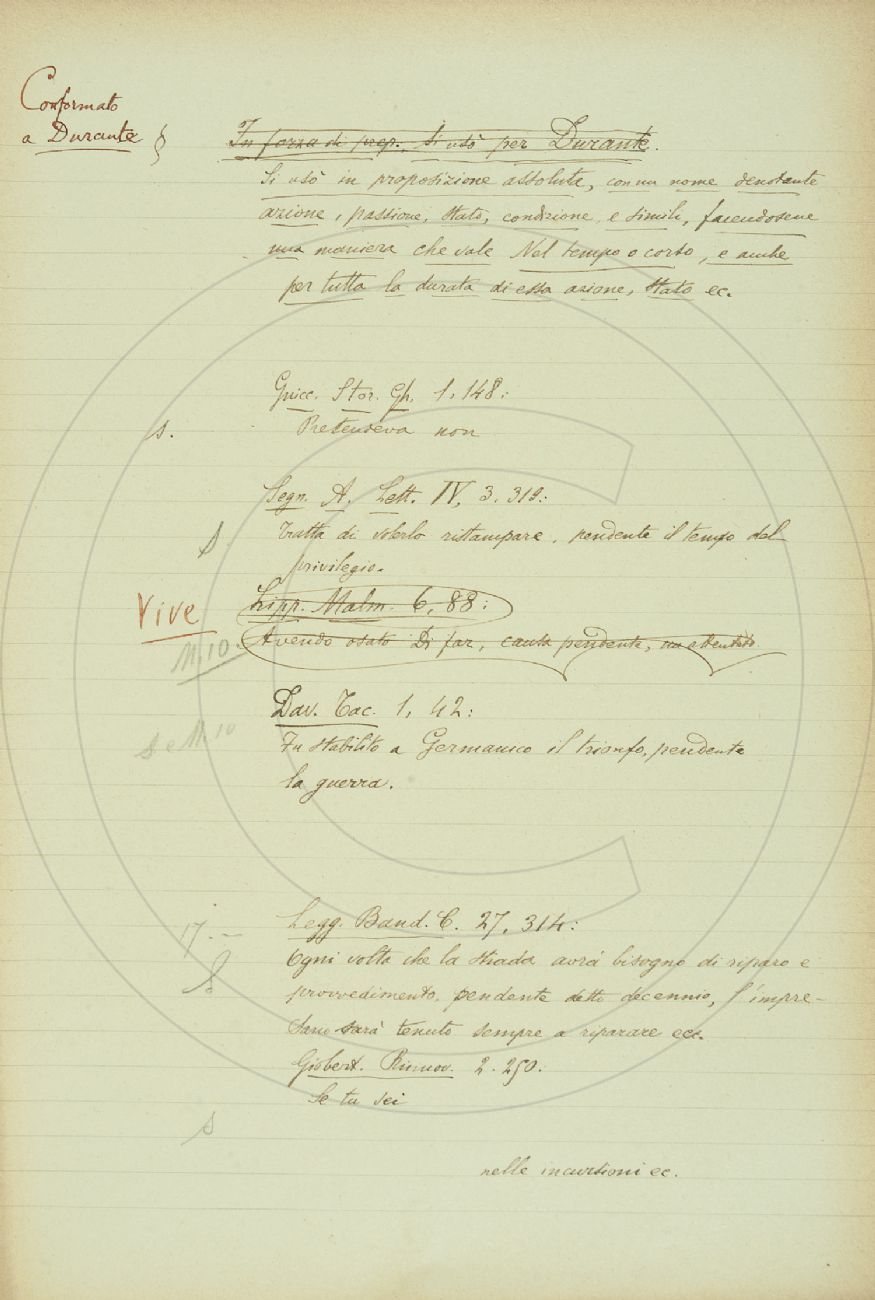 Conformato
a Durante §
In forza di prep., Si usò per Durante.
Si usò in proposizione assoluta, con un nome denotante
azione, passione, stato, condizione e simili, facendosene
una maniera che vale Nel tempo o corso, e anche
per tutta la durata di essa azione, stato ec.
Guicc. Stor. Gh. 1, 148:
s. Pretendeva non
Segn. A. Lett. IV, 3. 319:
S Tratta di volerlo ristampare, pendente il tempo del
privilegio.
Vive Lipp. Malm. 6, 88:
M. 10. Avendo osato Di far, causa pendente, un attentato.
Dav. Tac. 1, 42:
S e M. 10 Fu stabilito a Germanico il trionfo, pendente
la guerra.
17.-- Legg. Band. C. 27, 314:
S Ogni volta che la strada avrà bisogno di riparo e
provvedimento, pendente detto decennio, l'impre-
sario sarà tenuto sempre a riparare ecc.
Giobert. Rinnov. 2. 250:
Se tu sei
S
nelle incursioni ec.